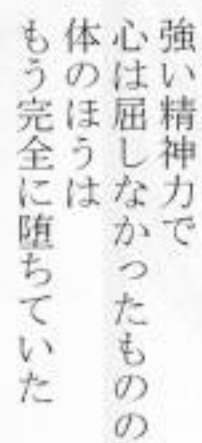 強い精神力で
心は屈しなかったものの
体のほうは
もう完全に堕ちていた